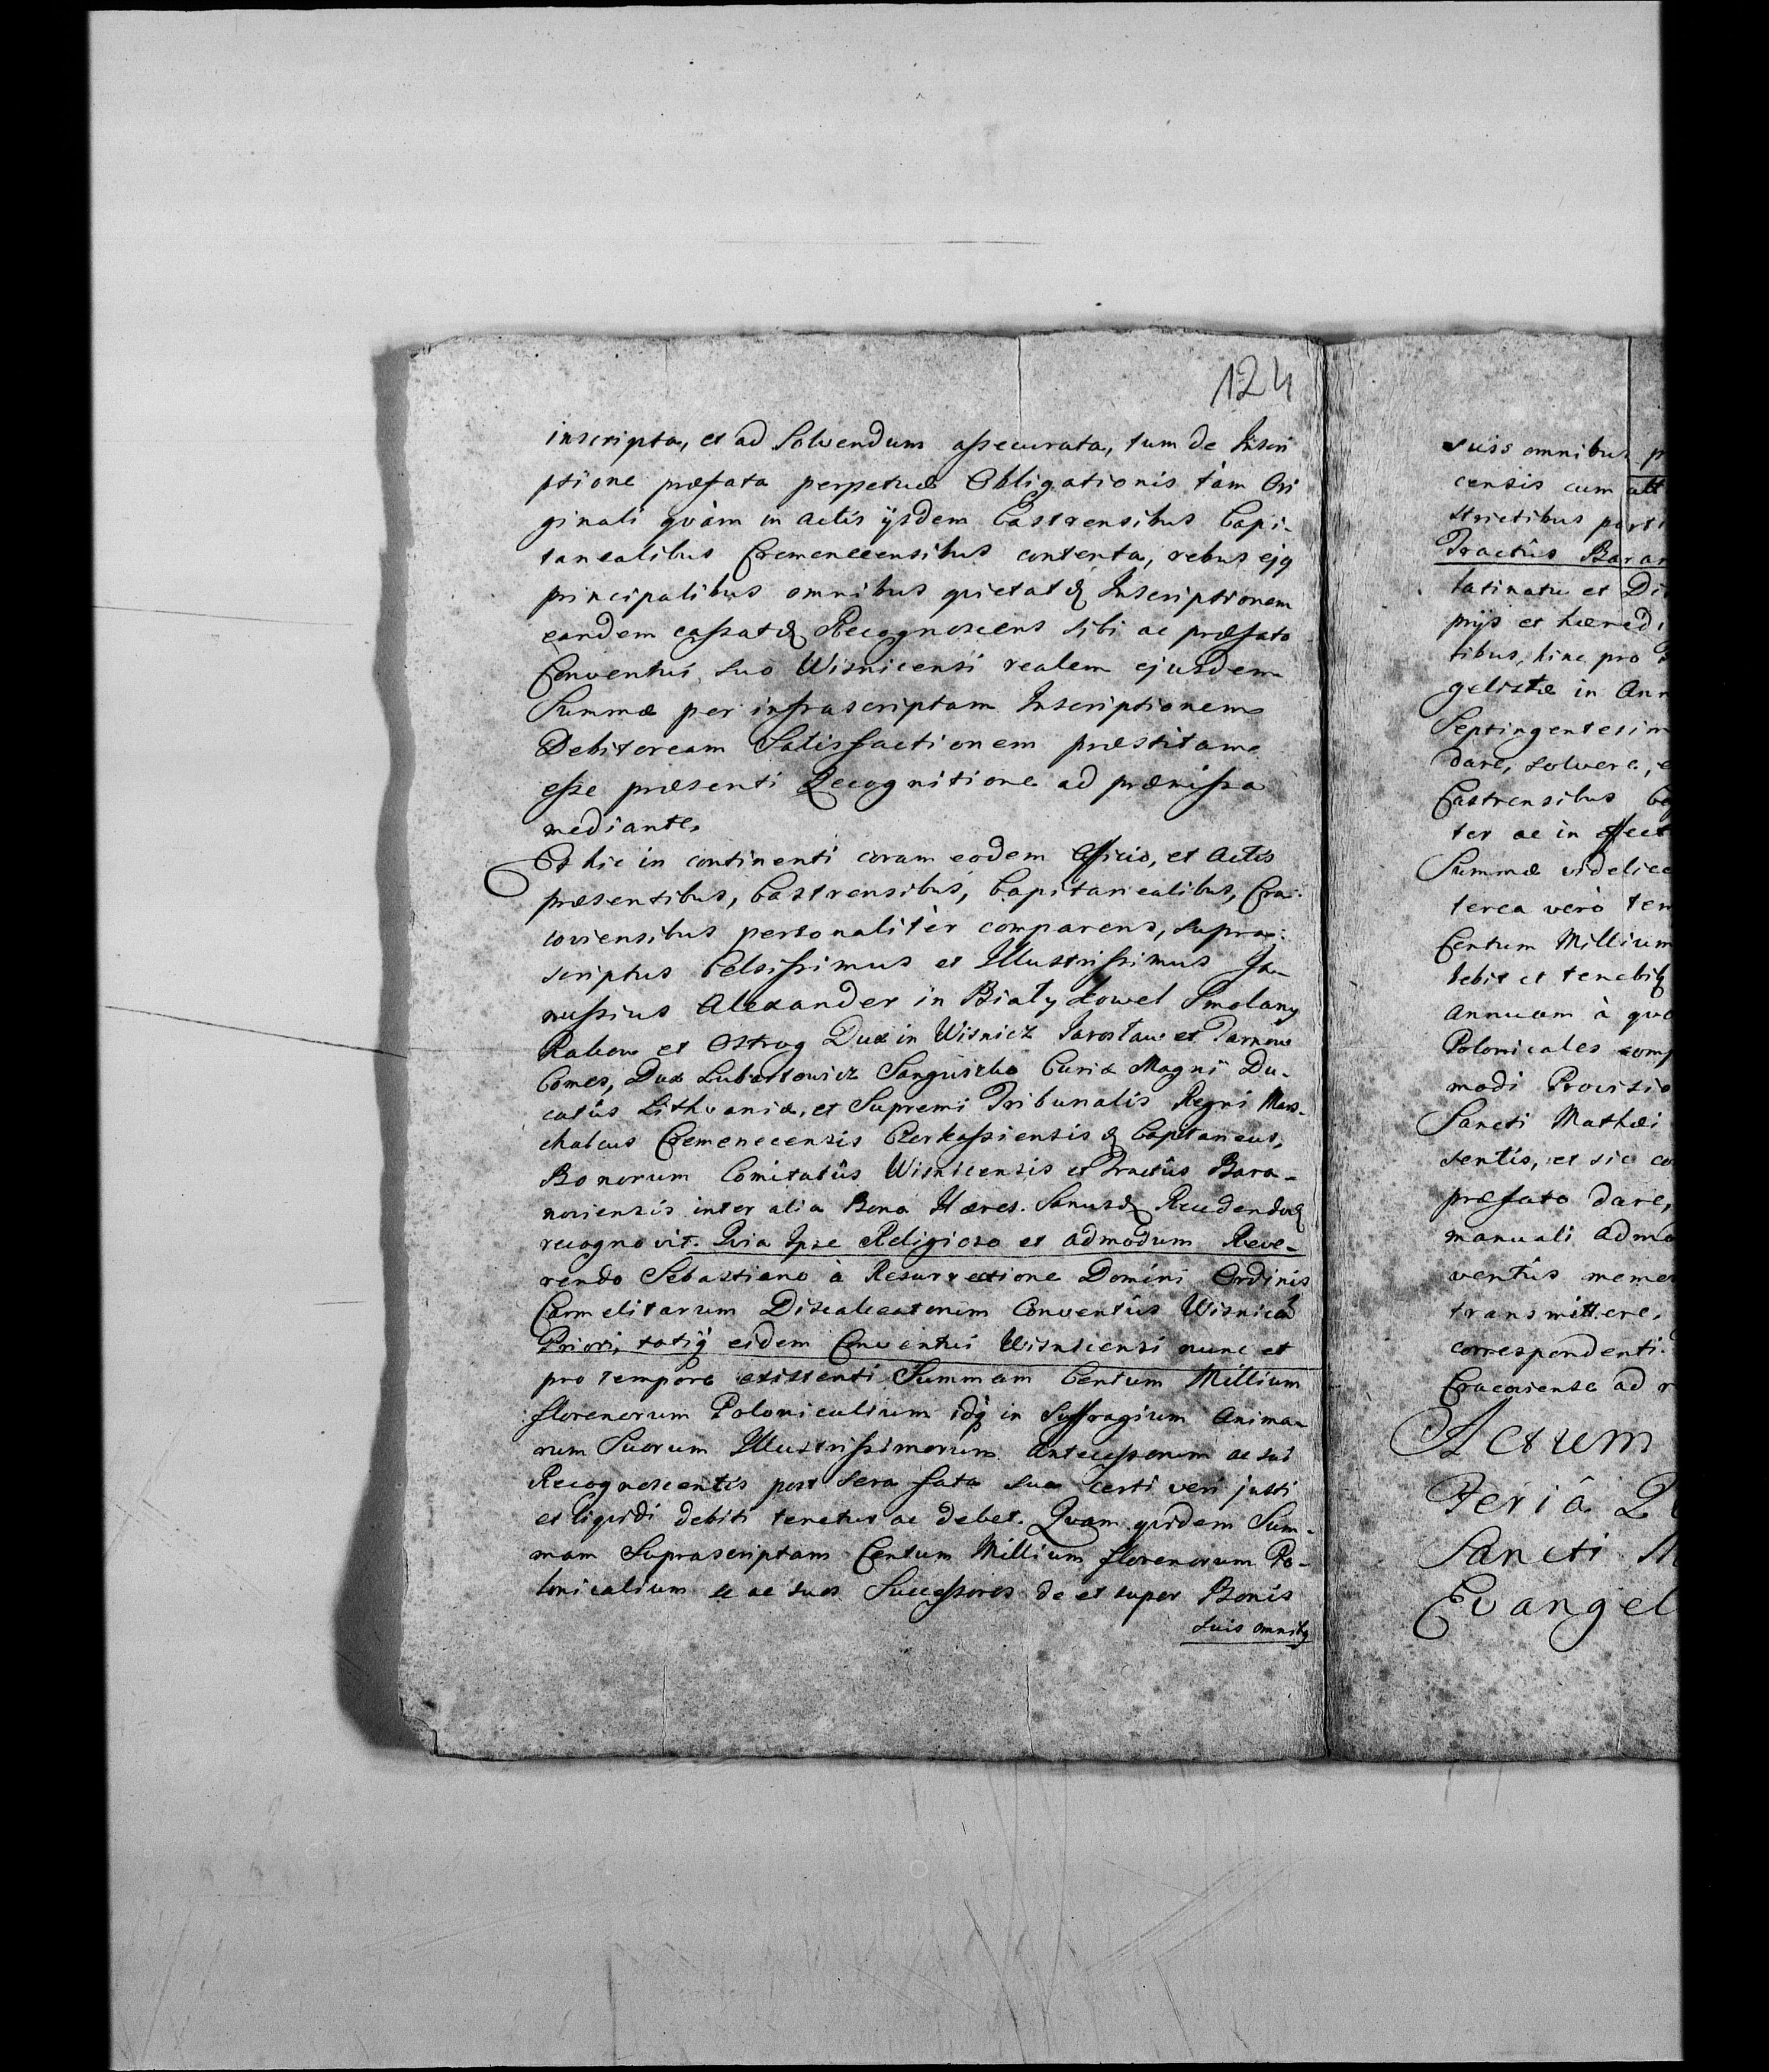 124
inscripta, et ad Solvendum assecurata, tum de Inscri
ptione præfata perpetuæ Obligationis tàm Ori
ginali qvàm in actis ijsdem Castrensibus Capi-
tanealibus Cremenecensibus contenta, rebus ejq
principalibus omnibus quietatq Inscriptionem
eandem cassatq Recognoscens sibi ac præfato
Conventui suo Wisnicensi realem ejusdem
Summæ per infrascriptam Inscriptionem
Debitoream Satisfactionem præstitam
esse præsenti Recognitione ad præmissa
mediante.
Et hic in continenti coram eodem Officio, et Actis
præsentibus, Castrensibus, Capitanealibus, Cra-
coviensibus personalitèr comparens, supra-
scriptus Celsissimus et Illustrissimus Ja-
nussius Alexander in Biały Kowel Smolany
Rakow et Ostrog Dux in Wisnicz Jarosław et Tarnow
Comes, Dux Lubartowicz Sanguszko Curiæ Magni Du-
catûs Lithvaniæ, et Supremi Tribunalis Regni Mars-
chalcus Cremenecensis Czerkassiensis & Capitaneus,
Bonorum Comitatûs Wisnicensis et Tractûs Bara-
noviensis inter alia Bona Hæres. Sanus &
recognovit. Qvia Ipse Religioso et admodum Reve-
rendo Sebastiano à Resurrectione Domini Ordinis
Carmelitarum Discalceatorum Conventûs Wisnicen
Priori, totiq eidem Conventui Wisnicensi nunc et
pro tempore existenti Summam Centum Millium
florenorum Polonicalium idq in Suffragium Anima-
rum Suorum Illustrissimorum Antecessorum ac sui
Recognoscentis post sera fata sua certi veri justi
et liqvidi debiti tenetur ac debet. Qvam qvidem Sum-
mam Suprascriptam Centum Millium florenorum Po-
lonicalium se ac suos Successores de et super Bonis
suis omnibq
suis omnibus
censis cum att
strictibus parti
Tractûs Baran
latinatu et Di
prijs et hæredi
tibus, hinc pro
gelistæ in Ann
Septingentesim
dare, solvere, e
Castrensibus Ca
ter ac in effect
Summæ videlice
terea verò tem
Centum Millium
debit et tenebiq
annuam à qvo
Polonicales comp
modi Provisio
Sancti Mathæi
sentis, et sic co
præfato dare,
manuali admo
ventûs memo
transmittere.
correspondenti
Cracoviense ad r
Actum
Feriâ Q
Sancti M
Evangel